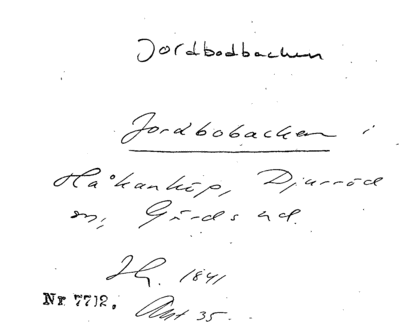 Jordbodbacken
Jordbobacken i
Håkanköp, Djurröd
sn, Gärds hd.
Jb. 1841
Nr 7712. Akt 35.